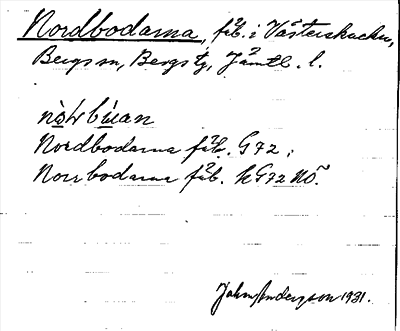 Nordbodarna, fäb. i Västerskucku,
Bergs sn, Bergs tg, Jämtl. l.
nòṣ̌bùan
Nordbodarna fäb. G 72;
Norrbodarna fäb. k G72 NÖ.
John Anderzson 1931.